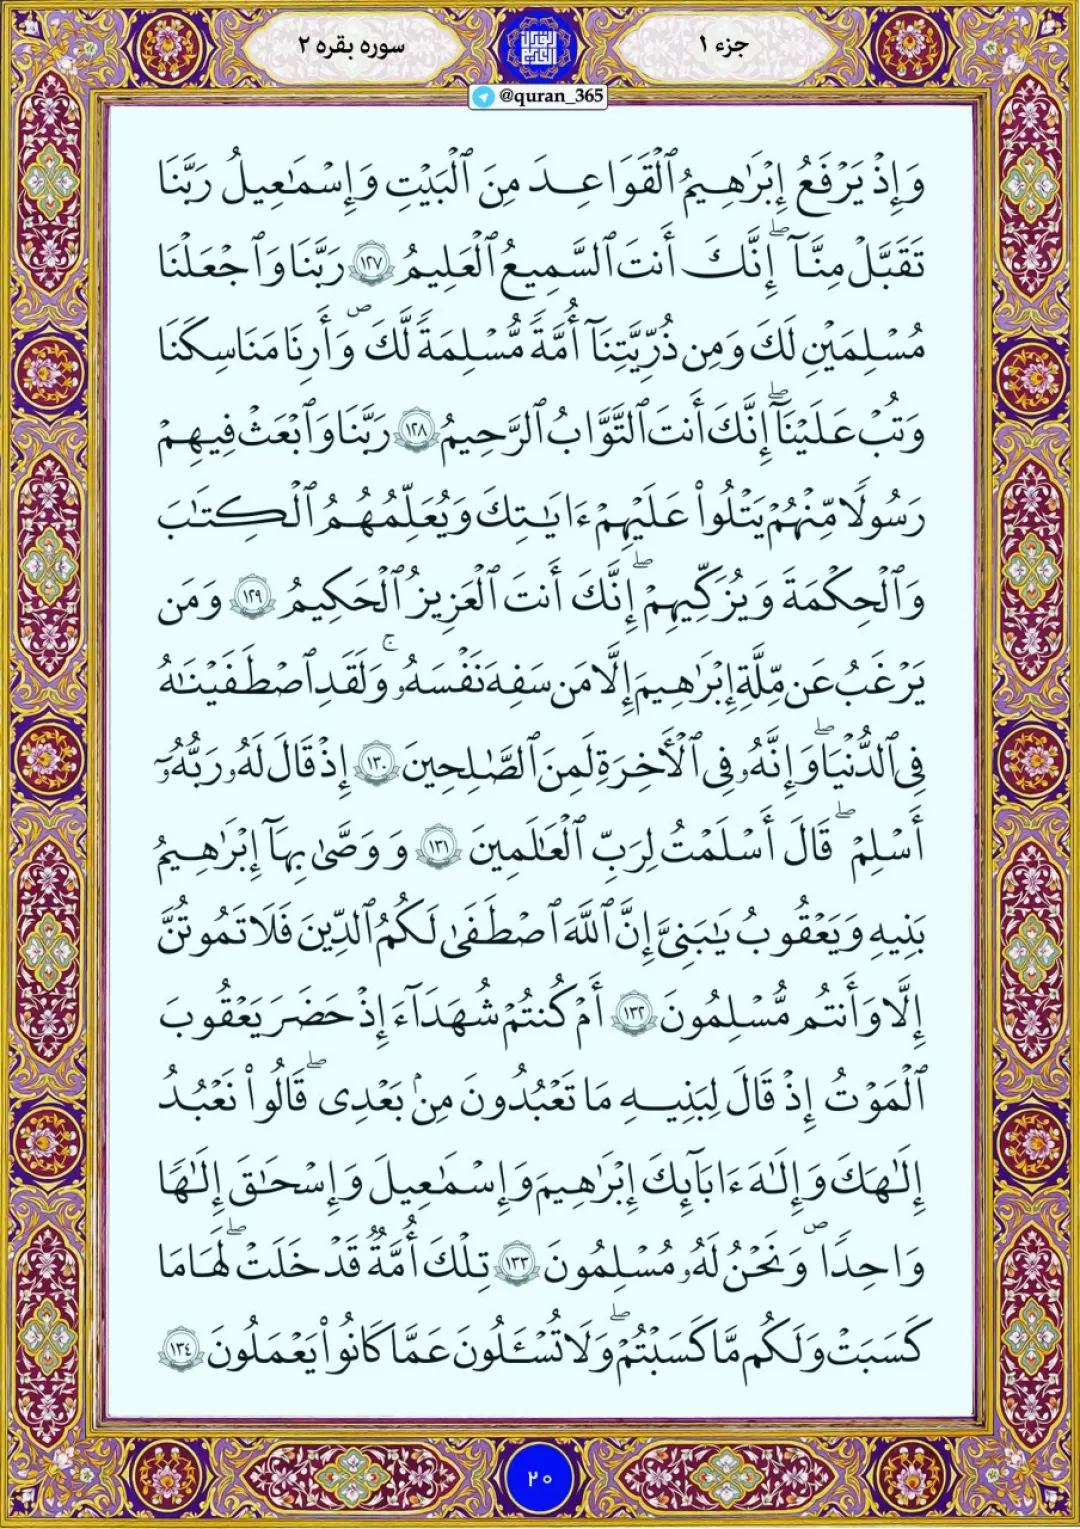 جزء ۱
سوره بقره ۲
@quran_365
وَإِذْ يَرْفَعُ إِبْرَٰهِيمُ ٱلْقَوَاعِدَ مِنَ ٱلْبَيْتِ وَإِسْمَٰعِيلُ رَبَّنَا
تَقَبَّلْ مِنَّآ ۖ إِنَّكَ أَنتَ ٱلسَّمِيعُ ٱلْعَلِيمُ ١٢٧ رَبَّنَا وَٱجْعَلْنَا
مُسْلِمَيْنِ لَكَ وَمِن ذُرِّيَّتِنَآ أُمَّةً مُّسْلِمَةً لَّكَ ۖ وَأَرِنَا مَنَاسِكَنَا
وَتُبْ عَلَيْنَآ ۖ إِنَّكَ أَنتَ ٱلتَّوَّابُ ٱلرَّحِيمُ ١٢٨ رَبَّنَا وَٱبْعَثْ فِيهِمْ
رَسُولًا مِّنْهُمْ يَتْلُوا۟ عَلَيْهِمْ ءَايَٰتِكَ وَيُعَلِّمُهُمُ ٱلْكِتَٰبَ
وَٱلْحِكْمَةَ وَيُزَكِّيهِمْ ۖ إِنَّكَ أَنتَ ٱلْعَزِيزُ ٱلْحَكِيمُ ١٢٩ وَمَن
يَرْغَبُ عَن مِّلَّةِ إِبْرَٰهِيمَ إِلَّا مَن سَفِهَ نَفْسَهُۥ ۚ وَلَقَدِ ٱصْطَفَيْنَٰهُ
فِى ٱلدُّنْيَا ۖ وَإِنَّهُۥ فِى ٱلْأَخِرَةِ لَمِنَ ٱلصَّٰلِحِينَ ١٣٠ إِذْ قَالَ لَهُۥ رَبُّهُۥٓ
أَسْلِمْ ۖ قَالَ أَسْلَمْتُ لِرَبِّ ٱلْعَٰلَمِينَ ١٣١ وَوَصَّىٰ بِهَآ إِبْرَٰهِيمُ
بَنِيهِ وَيَعْقُوبُ يَٰبَنِىَّ إِنَّ ٱللَّهَ ٱصْطَفَىٰ لَكُمُ ٱلدِّينَ فَلَا تَمُوتُنَّ
إِلَّا وَأَنتُم مُّسْلِمُونَ ١٣٢ أَمْ كُنتُمْ شُهَدَآءَ إِذْ حَضَرَ يَعْقُوبَ
ٱلْمَوْتُ إِذْ قَالَ لِبَنِيهِ مَا تَعْبُدُونَ مِنۢ بَعْدِى ۖ قَالُوا۟ نَعْبُدُ
إِلَٰهَكَ وَإِلَٰهَ ءَابَآئِكَ إِبْرَٰهِيمَ وَإِسْمَٰعِيلَ وَإِسْحَٰقَ إِلَٰهًا
وَاحِدًا ۖ وَنَحْنُ لَهُۥ مُسْلِمُونَ ١٣٣ تِلْكَ أُمَّةٌ قَدْ خَلَتْ ۖ لَهَا مَا
كَسَبَتْ وَلَكُم مَّا كَسَبْتُمْ ۖ وَلَا تُسْـَٔلُونَ عَمَّا كَانُوا۟ يَعْمَلُونَ ١٣٤
۲۰